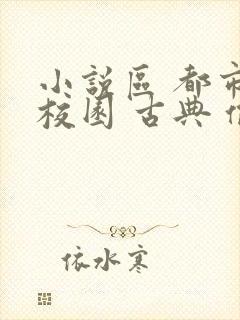 小說區 都市
校園 古典
依水寒